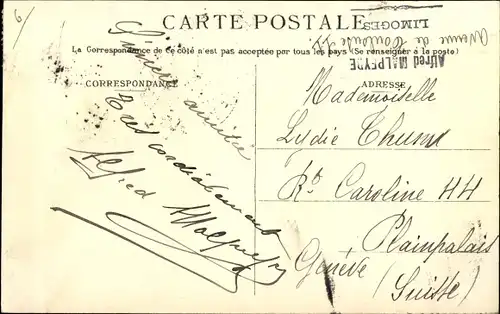 CARTE POSTALE
La Correspondance de ce côté n'est pas acceptée par tous les pays (Se renseigner à la poste)
CORRESPONDANCE
ADRESSE
Sincère amitié
Très cordialement
Alfred Malpeyre
Alfred MALPEYRE
Avenue de Toulouse
LIMOGES
Mademoiselle
Lydie
Rt Caroline 44
Plainpalais
Genève (Suisse)